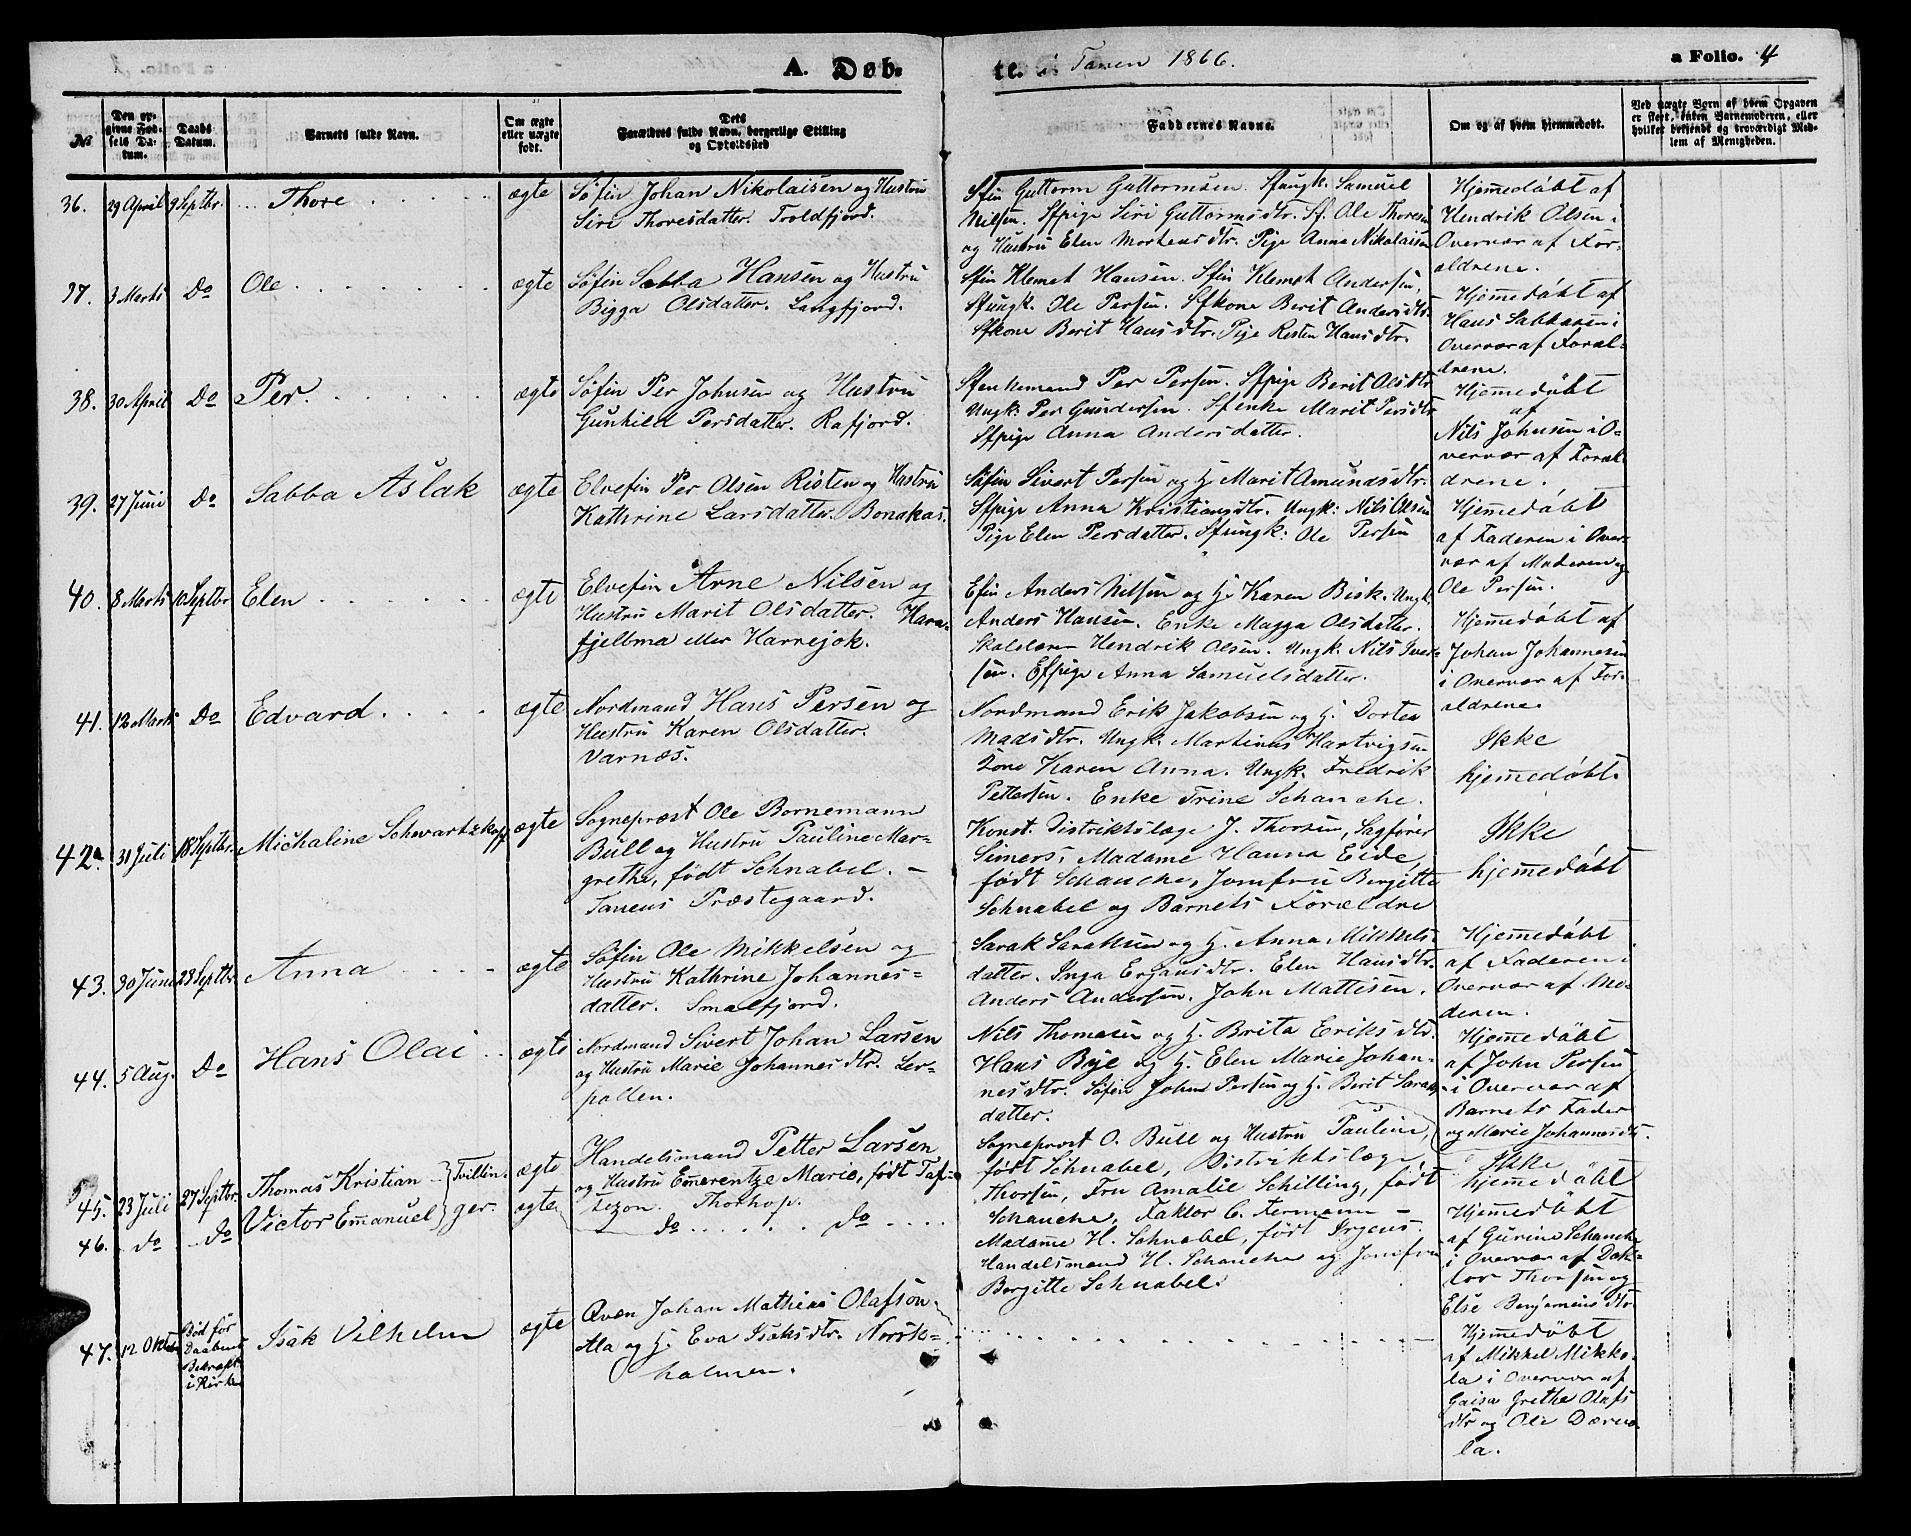 A. Døb.
te. i Tanen 1866. a Folio. 4
№
Den opgivne Fødsels Datum.
Daabs Datum.
Barnets fulde Navn.
Om ægte eller uægte født.
Dets Forældres fulde Navn, borgerlige Stilling og Opholdssted
Faddernes Navne.
Om og af hvem hjemmedøbt.
Ved uægte Børn af hvem Opgaven er skeet, enten Barnemoderen, eller hvilket bekjendt og troværdigt Medlem af Menigheden.
36. 29 April 9 Septbr. Thore ægte
Søfin Johan Nikolaisen og Hustru
Siri Thoresdatter. Troldfjord.
Sfin Guttorm Guttormsen. Sfungk. Samuel
Nilsen. Sfpige Siri Guttormsdtr. Sf. Ole Thoresen
og Hustru Elen Mortensdtr. Pige Anna Nikolaisen
Hjemmedøbt af
Hendrik Olsen i
Overvær af For-
ældrene.
37. 3 Marts Do Ole ægte
Søfin Sabba Hansen og Hustru
Bigga Olsdatter. Langfjord.
Sfin Klemet Hansen. Sfin Klemet Andersen,
Sfungk. Ole Persen. Sfkone Berit Andersdtr.
Sfkone Berit Hansdtr. Pige Risten Hansdtr.
Hjemmedøbt af
Hans Sabbasen i
Overvær af Foræl-
drene.
38. 30 April Do Per. ægte
Søfin Per Johnsen og Hustru
Gunhild Persdatter. Rafjord.
Sfenkemand Per Persen. Sfpige Berit Olsdtr
Ungk: Per Gundersen. Sfenke Marit Persdtr
Sfpige Anna Andersdatter.
Hjemmedøbt
af
Nils Johnsen i O-
vervær af Foræl-
drene.
39. 27 Juni Do Sabba Aslak ægte
Elvefin Per Olsen Risten og Hustru
Kathrine Larsdatter. Bonakas.
Søfin Sivert Persen og H. Marit Amundsdtr.
Sfpige Anna Kristiansdtr. Ungk: Nils Olsen
Pige Elen Persdatter. Sfungk: Ole Persen
Hjemmedøbt
af Faderen i Over-
vær af Moderen og
Ole Persen.
40. 8 Marts 10 Septbr Elen ægte
Elvefin Arne Nilsen og
Hustru Marit Olsdatter. Hara-
fjellma eller Harrejok.
Efin Anders Nilsen og H. Karen Bisk. Ungk.
Anders Hansen. Enke Magga Olsdatter.
Skolelærer Hendrik Olsen. Ungk. Nils Iver-
sen. Efpige Anna Samuelsdatter.
Hjemmedøbt af
Johan Johannesen
i Overvær af For-
ældrene.
41. 12 Marts Do Edvard. ægte
Nordmand Hans Persen og
Hustru Karen Olsdatter.
Varnæs.
Nordmand Erik Jakobsen og H. Dortea
Madsdtr. Ungk. Martinus Hartvigsen
Kone Karen Anna. Ungk. Fredrik
Pettersen. Enke Trine Schanche.
Ikke
hjemmedøbt.
42. 31 Juli 18 Septbr. Michaline Schwartzkopf ægte
Sognepræst Ole Bornemann
Bull og Hustru Pauline Mar-
grethe, født Schnabel. –
Tanens Præstegaard.
Konst. Distriktslæge J. Thorsen, Sagfører
Simers, Madame Hanna Eide,
født Schanche, Jomfru Bergitte
Schnabel og Barnets Forældre
Ikke
hjemmedøbt
43. 30 Juni 23 Septbr. Anna ægte
Søfin Ole Mikkelsen og
Hustru Kathrine Johannes-
datter. Smalfjord.
Sarak Saraksen og H. Anna Mikkels-
datter. Inga Erjansdtr. Elen Hansdtr.
Anders Andersen. John Mattisen.
Hjemmedøbt
af Faderen i
Overvær af Mo-
deren.
44. 5 Aug. Do Hans Olai ægte
Nordmand Sivert Johan Larsen
og Hustru Marie Johannesdtr. Ler-
pollen.
Nils Thomasen og H. Brita Eriksdtr.
Hans Bye og H. Elen Marie Johan-
nesdtr. Søfin John Persen og H. Berit Saraks-
datter.
Hjemmedøbt
af John Persen
i Overvær af
Barnets Fader
og Marie Johannesdtr.
45. 23 Juli 27 Septbr. Thomas Kristian – Tvillin- ægte
46. do do Victor Emanuel ger. ægte
Handelsmand Petter Larsen
og Hustru Emerentze Marie, født Taf-
tezon. Thorhop.
do do
Sogneprost O. Bull og Hustru Pauline,
født Schnabel, Distriktslæge
Thorsen, Fru Amalie Schilling, født
Schanche, Faktor C. Fermann –
Madame H. Schnabel, født Irgens.
Handelsmand H. Schanche og Jomfru
Bergitte Schnabel.
Ikke
hjemmedøbt
Hjemmedøbt
af Gurine Schanche
i Overvær af Dok-
tor Thorsen og
Else Benjaminsdtr
47. 12 Oktbr Død før
Daabens
Bekræft.
i Kirke
Isak Vilhelm ægte
Qvæn Johan Mathias Olafson
Ala og H. Eva Isaksdtr. Norsk-
holmen.
Hjemmedøbt
af Mikkel Mikko-
la i Overvær af
Gaisa Grethe Olafs
dtr og Ole Dærno-
la.